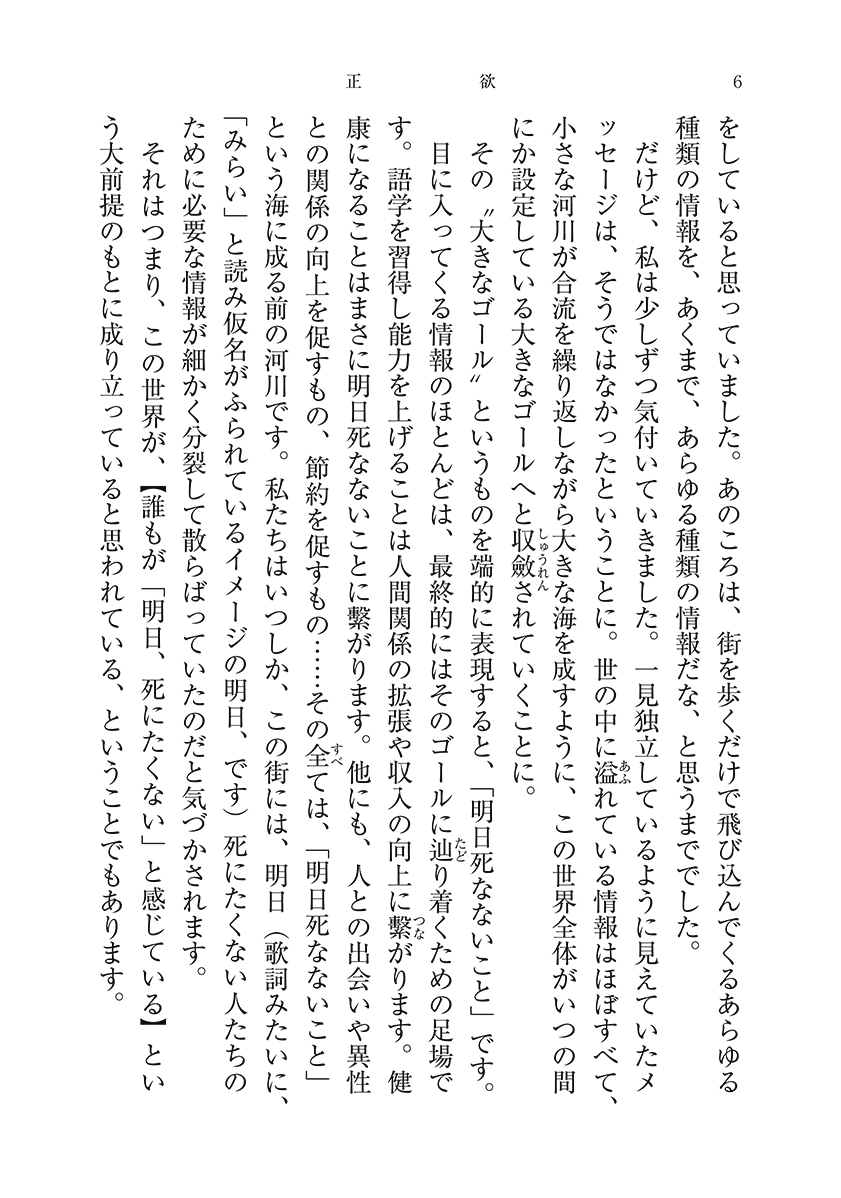 正欲
6
をしていると思っていました。あのころは、街を歩くだけで飛び込んでくるあらゆる
種類の情報を、あくまで、あらゆる種類の情報だな、と思うまででした。
だけど、私は少しずつ気付いていきました。一見独立しているように見えていたメ
ッセージは、そうではなかったということに。世の中に溢れている情報はほぼすべて、
あふ
小さな河川が合流を繰り返しながら大きな海を成すように、この世界全体がいつの間
にか設定している大きなゴールへと収斂されていくことに。
しゅうれん
その〝大きなゴール〟というものを端的に表現すると、「明日死なないこと」です。
目に入ってくる情報のほとんどは、最終的にはそのゴールに辿り着くための足場で
たど
す。語学を習得し能力を上げることは人間関係の拡張や収入の向上に繋がります。健
つな
康になることはまさに明日死なないことに繋がります。他にも、人との出会いや異性
との関係の向上を促すもの、節約を促すもの……その全ては、「明日死なないこと」
すべ
という海に成る前の河川です。私たちはいつしか、この街には、明日（歌詞みたいに、
「みらい」と読み仮名がふられているイメージの明日、です）死にたくない人たちの
ために必要な情報が細かく分裂して散らばっていたのだと気づかされます。
それはつまり、この世界が、【誰もが「明日、死にたくない」と感じている】とい
う大前提のもとに成り立っていると思われている、ということでもあります。